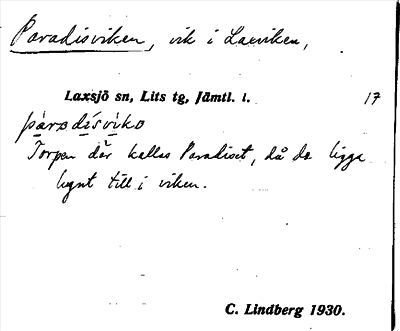 Paradisviken, vik i Laxviken,
Laxsjö sn, Lits tg, Jämtl. l. 17
paradisvikɷ
Torpen där kallas Paradiset, då de ligga
lugnt till i viken.
C. Lindberg 1930.